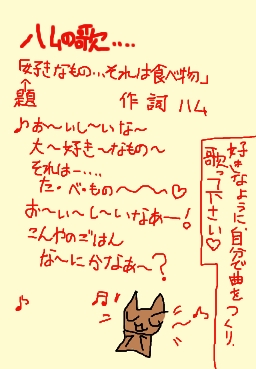 ハムの歌‥‥
「好きなもの…それは食べ物」
↑
題
作詞 ハム
♪お〜いし〜いな〜
大〜好き〜なもの〜
それは‥‥
た・べ・もの〜〜〜♡
お〜い〜し〜いなあー!
こんやのごはん
な〜にかなあ〜?
好きなように、自分で曲をつくり、
歌って下さい♡